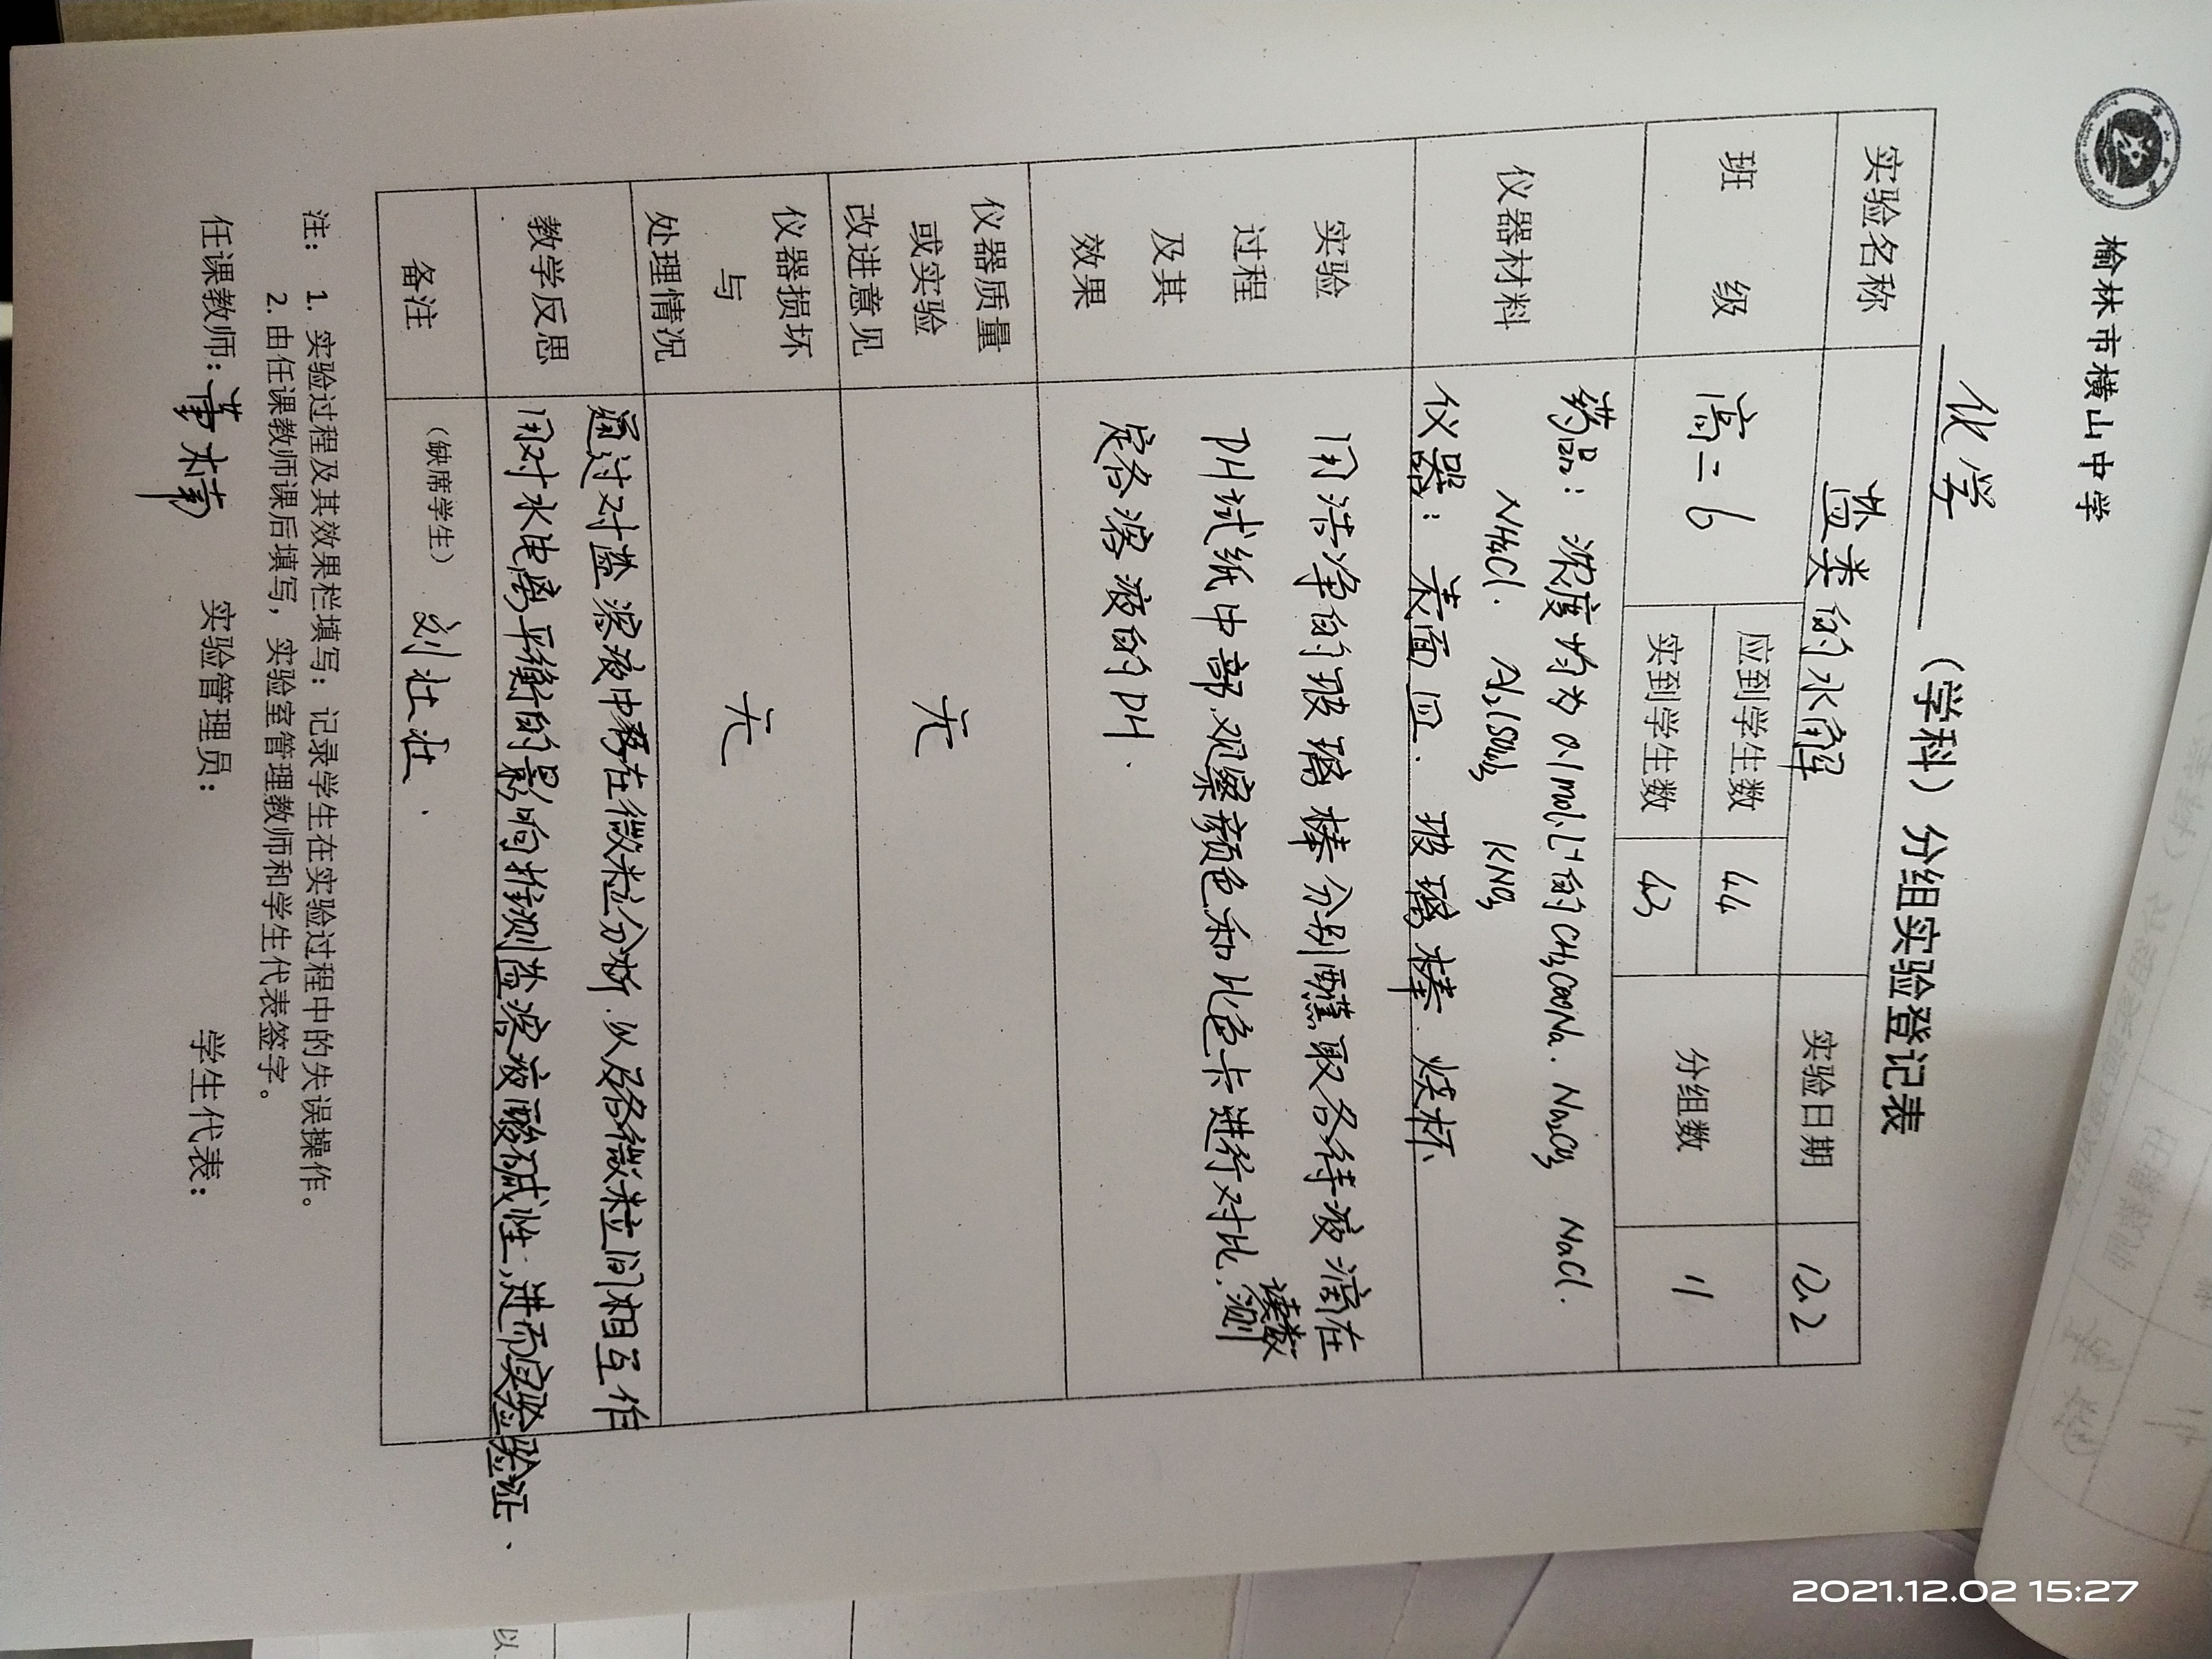 榆林市横山中学
化学（学科）分组实验登记表
实验名称 盐类的水解 实验日期 12.2
班级 高二6 应到学生数 44 分组数 11
实到学生数 43
仪器材料
药品：浓度均为0.1mol·L⁻¹的CH₃COONa. Na₂CO₃ NaCl.
NH₄Cl. Al₂(SO₄)₃ KNO₃
仪器：表面皿. 玻璃棒. 烧杯.
实验
过程
及其
效果
用洁净的玻璃棒分别蘸取各待液滴在
PH试纸中部,观察颜色和比色卡进行对比,读数测
定各溶液的PH.
仪器质量
或实验
改进意见
无
仪器损坏
与
处理情况
无
教学反思
通过对盐溶液中存在微粒分析.以及各微粒间相互作
用对水电离平衡的影响推测盐溶液酸碱性,进而实验验证.
备注 （缺席学生）刘壮壮.
注：1. 实验过程及其效果栏填写：记录学生在实验过程中的失误操作。
2. 由任课教师课后填写，实验室管理教师和学生代表签字。
任课教师： 实验管理员： 学生代表：
2021.12.02 15:27